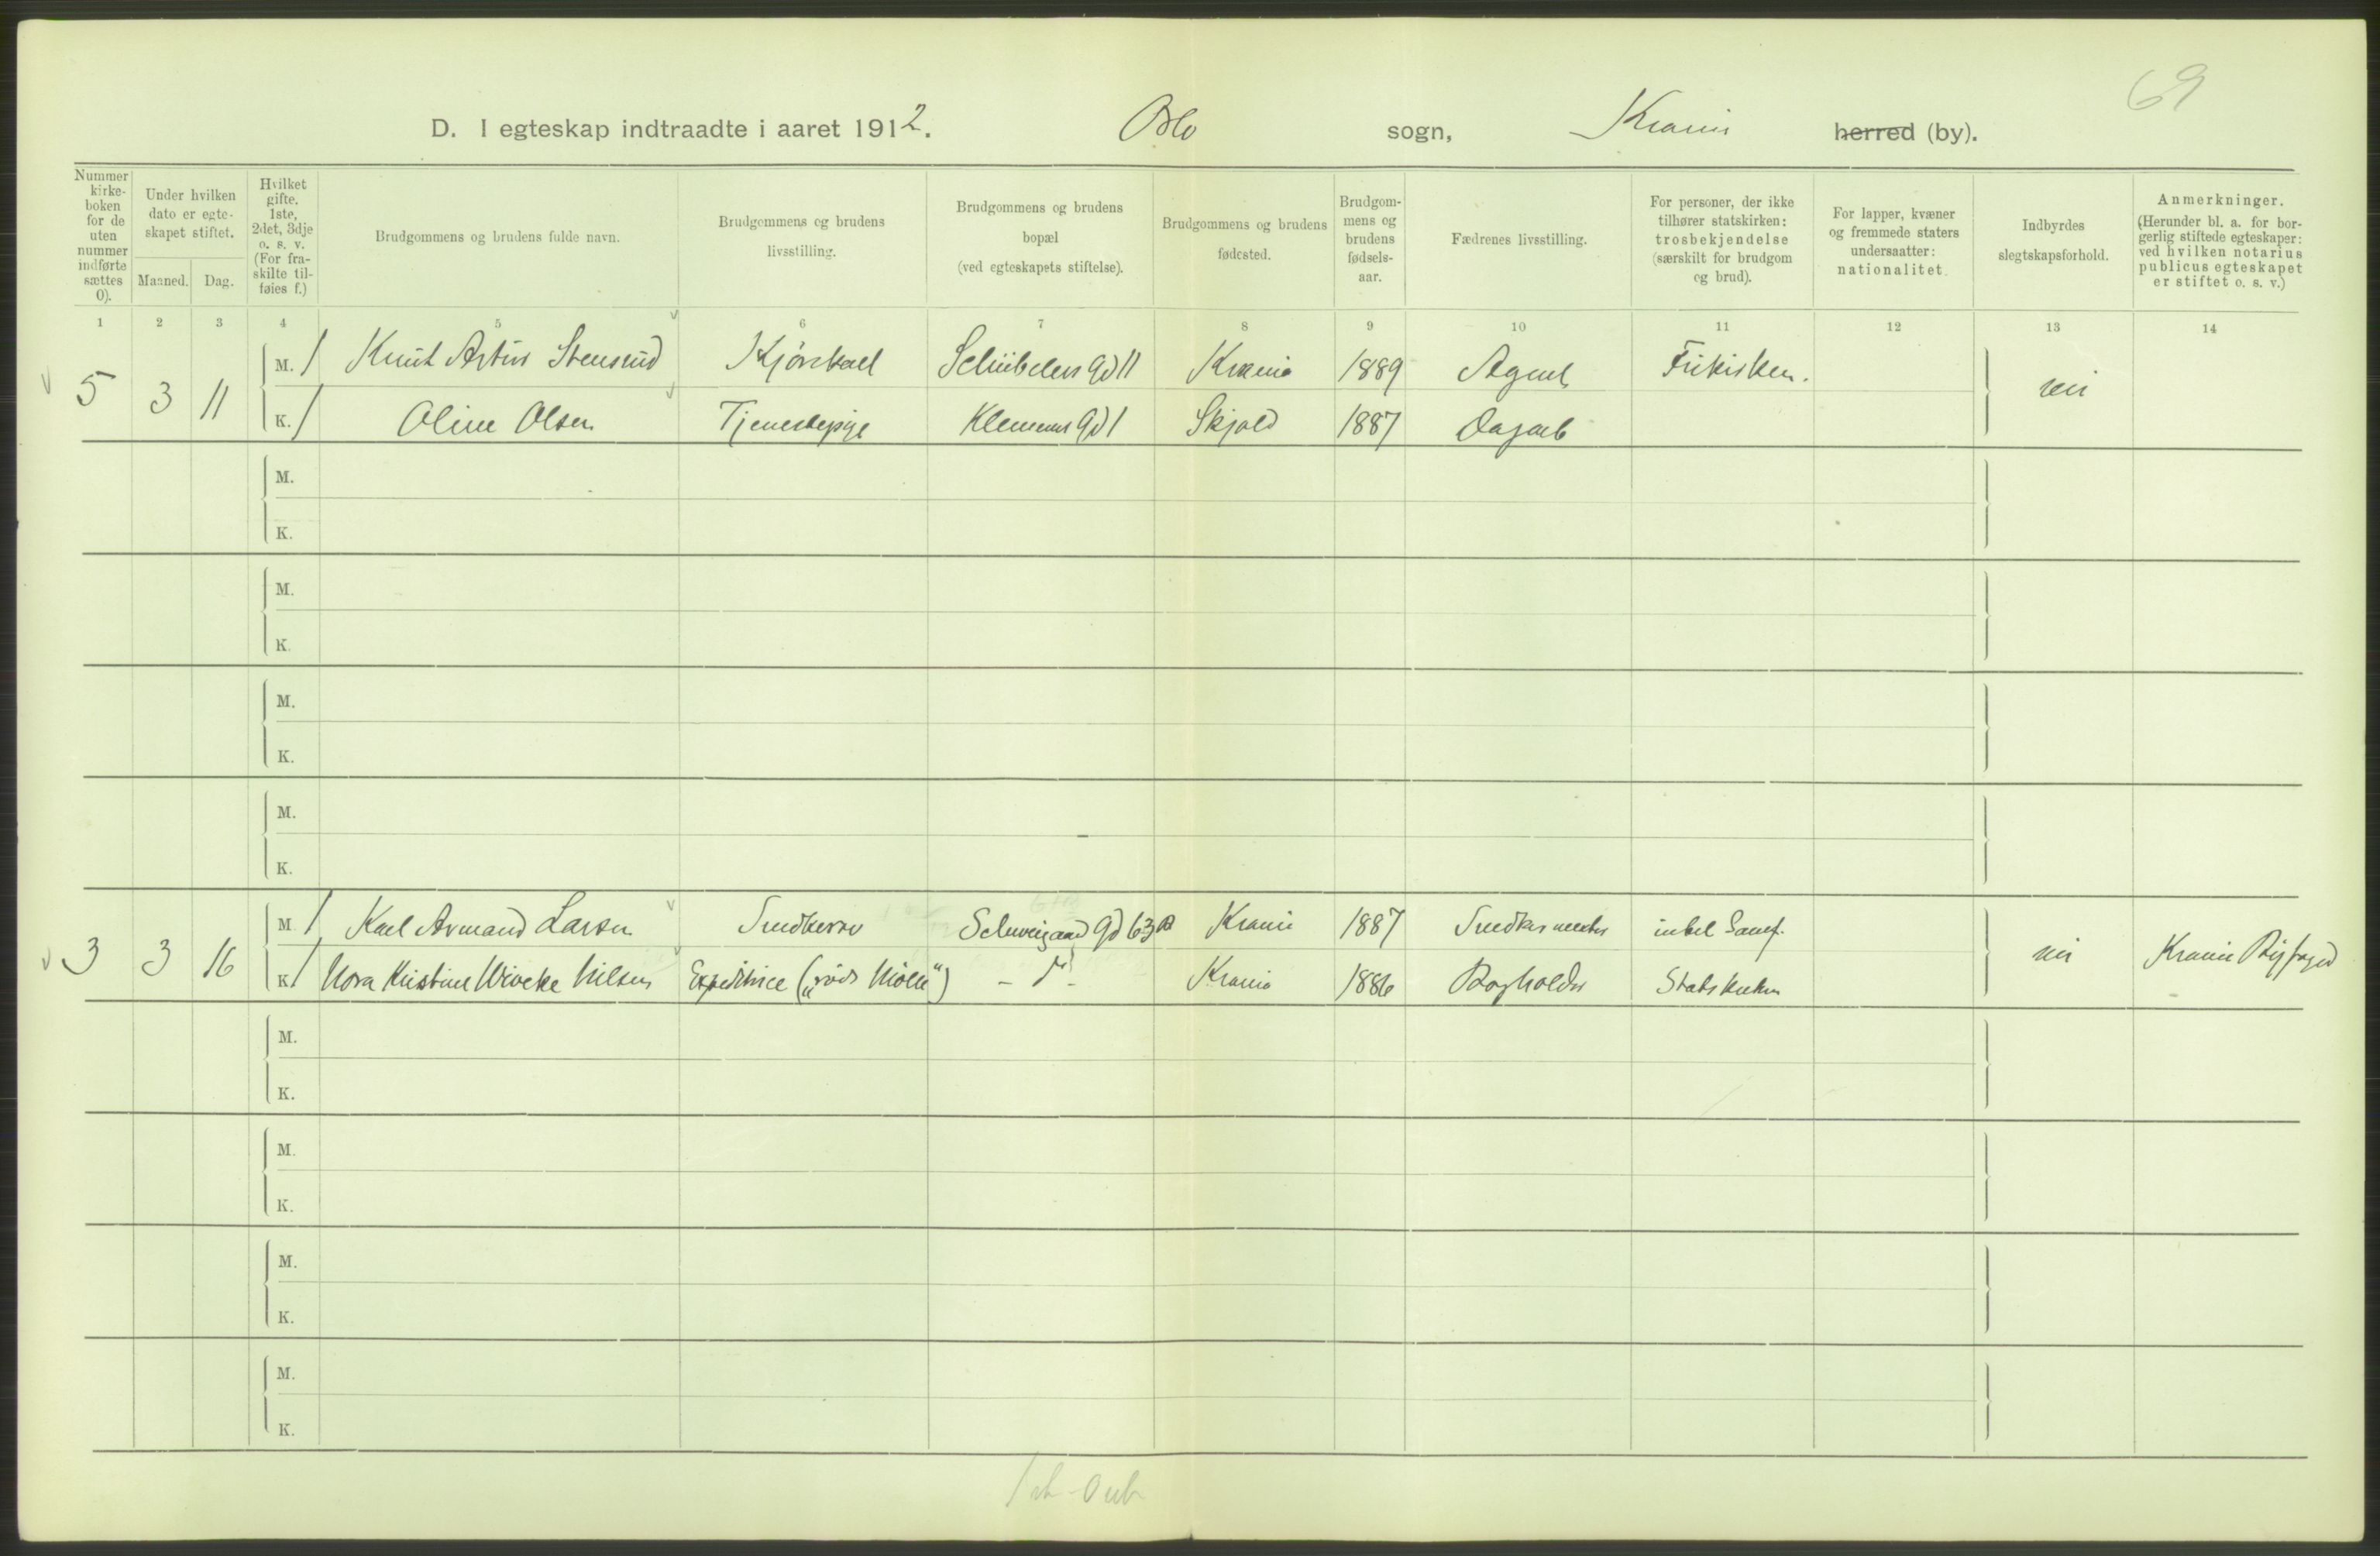 69
D. I egteskap indtraadte i aaret 1912. Oslo sogn, Krania herred (by).
Nummer kirke-boken for de uten nummer indførte sættes 0).
Under hvilken dato er egte-skapet stiftet.
Maaned. Dag.
Hvilket gifte. 1ste, 2det, 3dje o. s. v. (For fra-skilte til-føies f.)
Brudgommens og brudens fulde navn.
Brudgommens og brudens livsstilling.
Brudgommens og brudens bopæl (ved egteskapets stiftelse).
Brudgommens og brudens fødested.
Brudgom-mens og brudens fødsels-aar.
Fædrenes livsstilling.
For personer, der ikke tilhører statskirken: trosbekjendelse (særskilt for brudgom og brud).
For lapper, kvæner og fremmede staters undersaatter: nationalitet.
Indbyrdes slegtskapsforhold.
Anmerkninger. (Herunder bl. a. for bor-gerlig stiftede egteskaper: ved hvilken notarius publicus egteskapet er stiftet o. s. v.)
1 2 3 4 5 6 7 8 9 10 11 12 13 14
5 3 11 M. 1 Knut Artur Stensrud Kjørekarl Schübelers Gd 11 Krania 1889 Agent Frikirken. nei
K. 1 Oline Olsen Tjenestepige Klemens Gd 1 Skjold 1887 Dagarb
M.
K.
M.
K.
M.
K.
M.
K.
3 3 16 M. 1 Karl Armand Larsen Snedkersv Schweigaard Gd 63 Krania 1887 Snedkermester nei Krania Byfoged
K. 1 Nora Kristine Wiveke Nilsen Expeditrice („röde Mölle") Krania 1886 Bogholder Statskirken
M.
K.
M.
K.
M.
K.
M.
K.